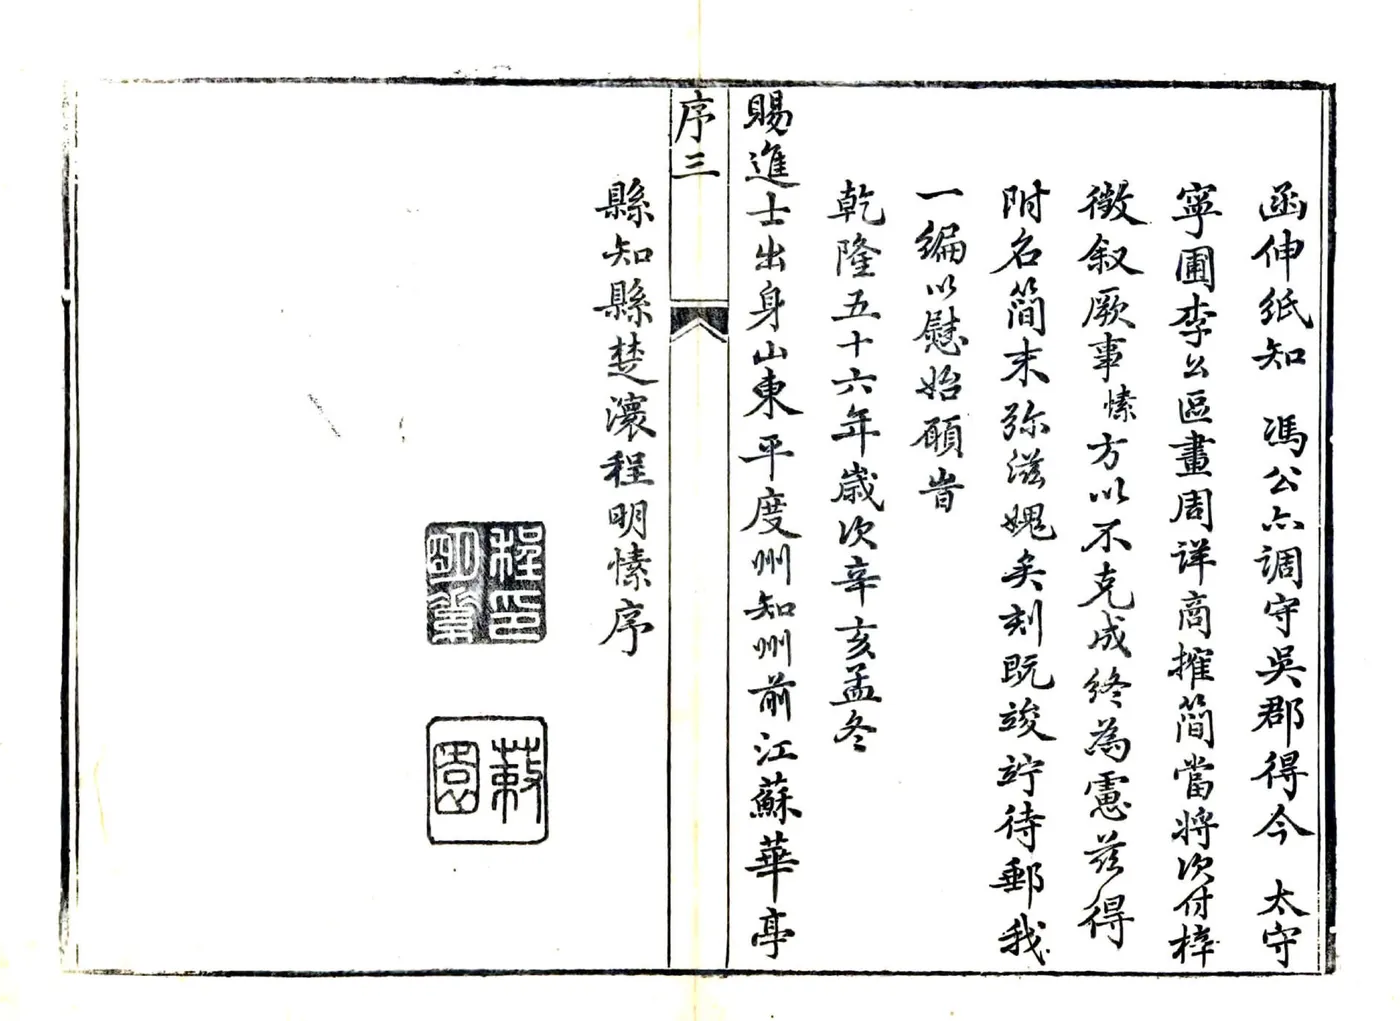 函伸紙知 馮公亦調守吳郡得今 太守
寧圃李公區畫周詳商搉簡當將次付梓
徵叙厥事愫方以不克成終為慮茲得
附名簡末弥滋媿矣刻既竣竚待郵我
一編以慰始願肯
乾隆五十六年歲次辛亥孟冬
賜進士出身山東平度州知州前江蘇華亭
序三
縣知縣楚瀤程明愫序
程印明愫
蔌園